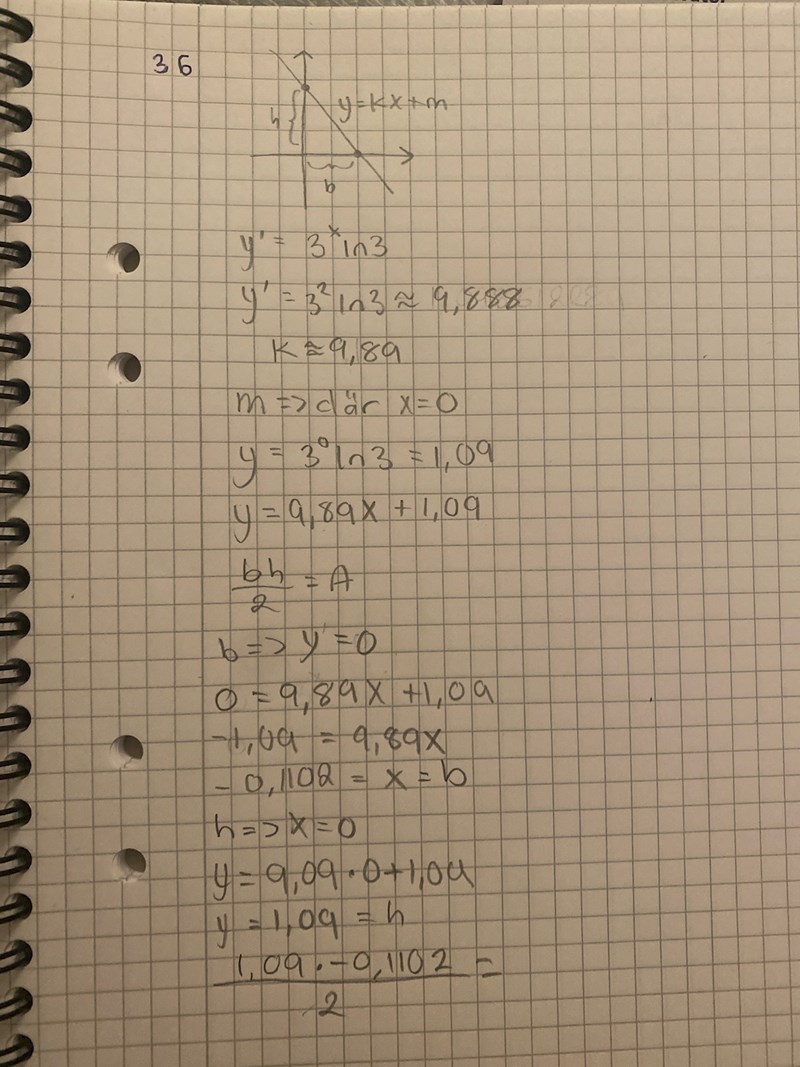 36
y=kx+m
h
b
y' = 3^x ln3
y' = 3² ln3 ≈ 9,888
k ≈ 9,89
m => där x=0
y = 3⁰ ln3 = 1,09
y = 9,89x + 1,09
bh/2 = A
b => y = 0
0 = 9,89x + 1,09
-1,09 = 9,89x
- 0,1102 = x = b
h => x = 0
y = 9,09 · 0 + 1,09
y = 1,09 = h
1,09 · -0,1102 =
2